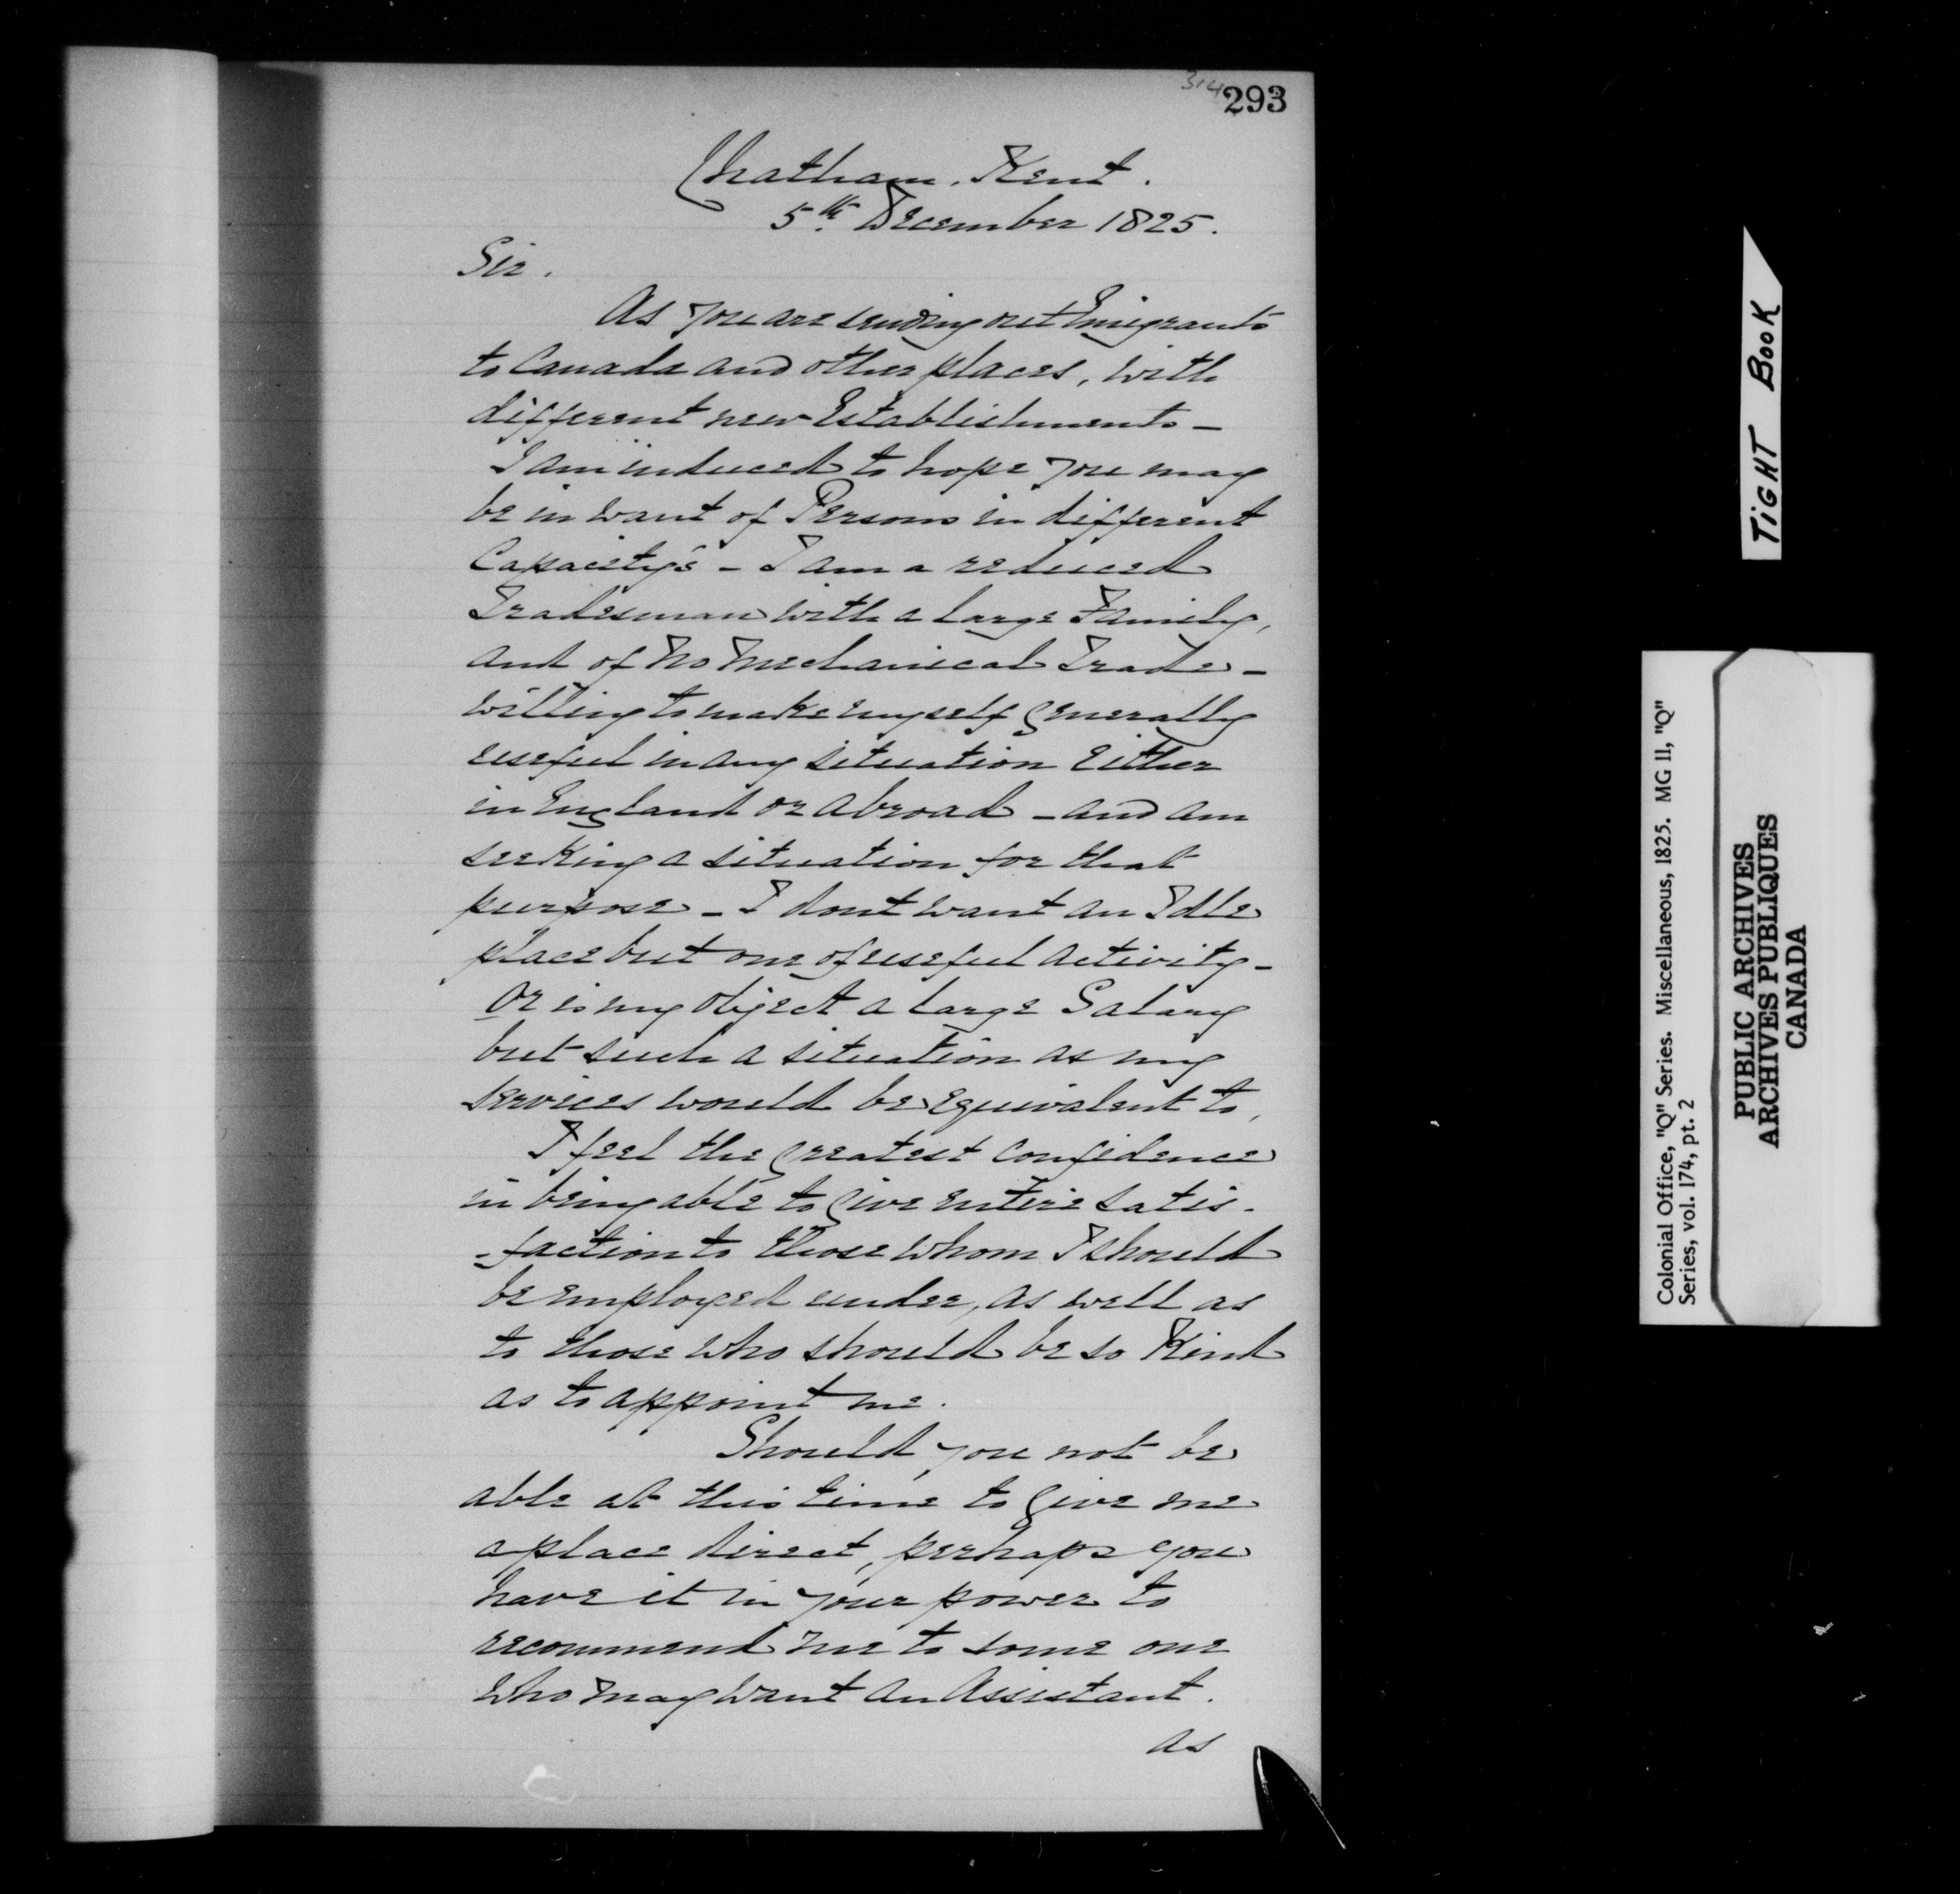 314
293
Chatham. Kent.
5th December 1825.
Sir.
As you are sending out Emigrants
to Canada and other places, with
different new Establishments -
I am induced to hope you may
be in want of Persons in different
Capacity's - I am a reduced
Tradesman with a large Family,
and of no mechanical Trade -
willing to make myself generally
useful in any situation Either
in England or abroad - and am
seeking a situation for that
purpose - I dont want an Idle
place but one of useful activity -
or is my object a large Salary
but such a situation as my
services would be equivalent to,
I feel the greatest confidence
in being able to give entire satis-
-faction to those whom I should
be employed under, as well as
to those who should be so Kind
as to appoint me.
Should you not be
able at this time to give me
a place direct, perhaps you
have it in your power to
recommend me to some one
who may want an Assistant.
as
TIGHT BOOK
Colonial Office, "Q" Series. Miscellaneous, 1825. MG 11, "Q"
Series, vol. 174, pt. 2
PUBLIC ARCHIVES
ARCHIVES PUBLIQUES
CANADA